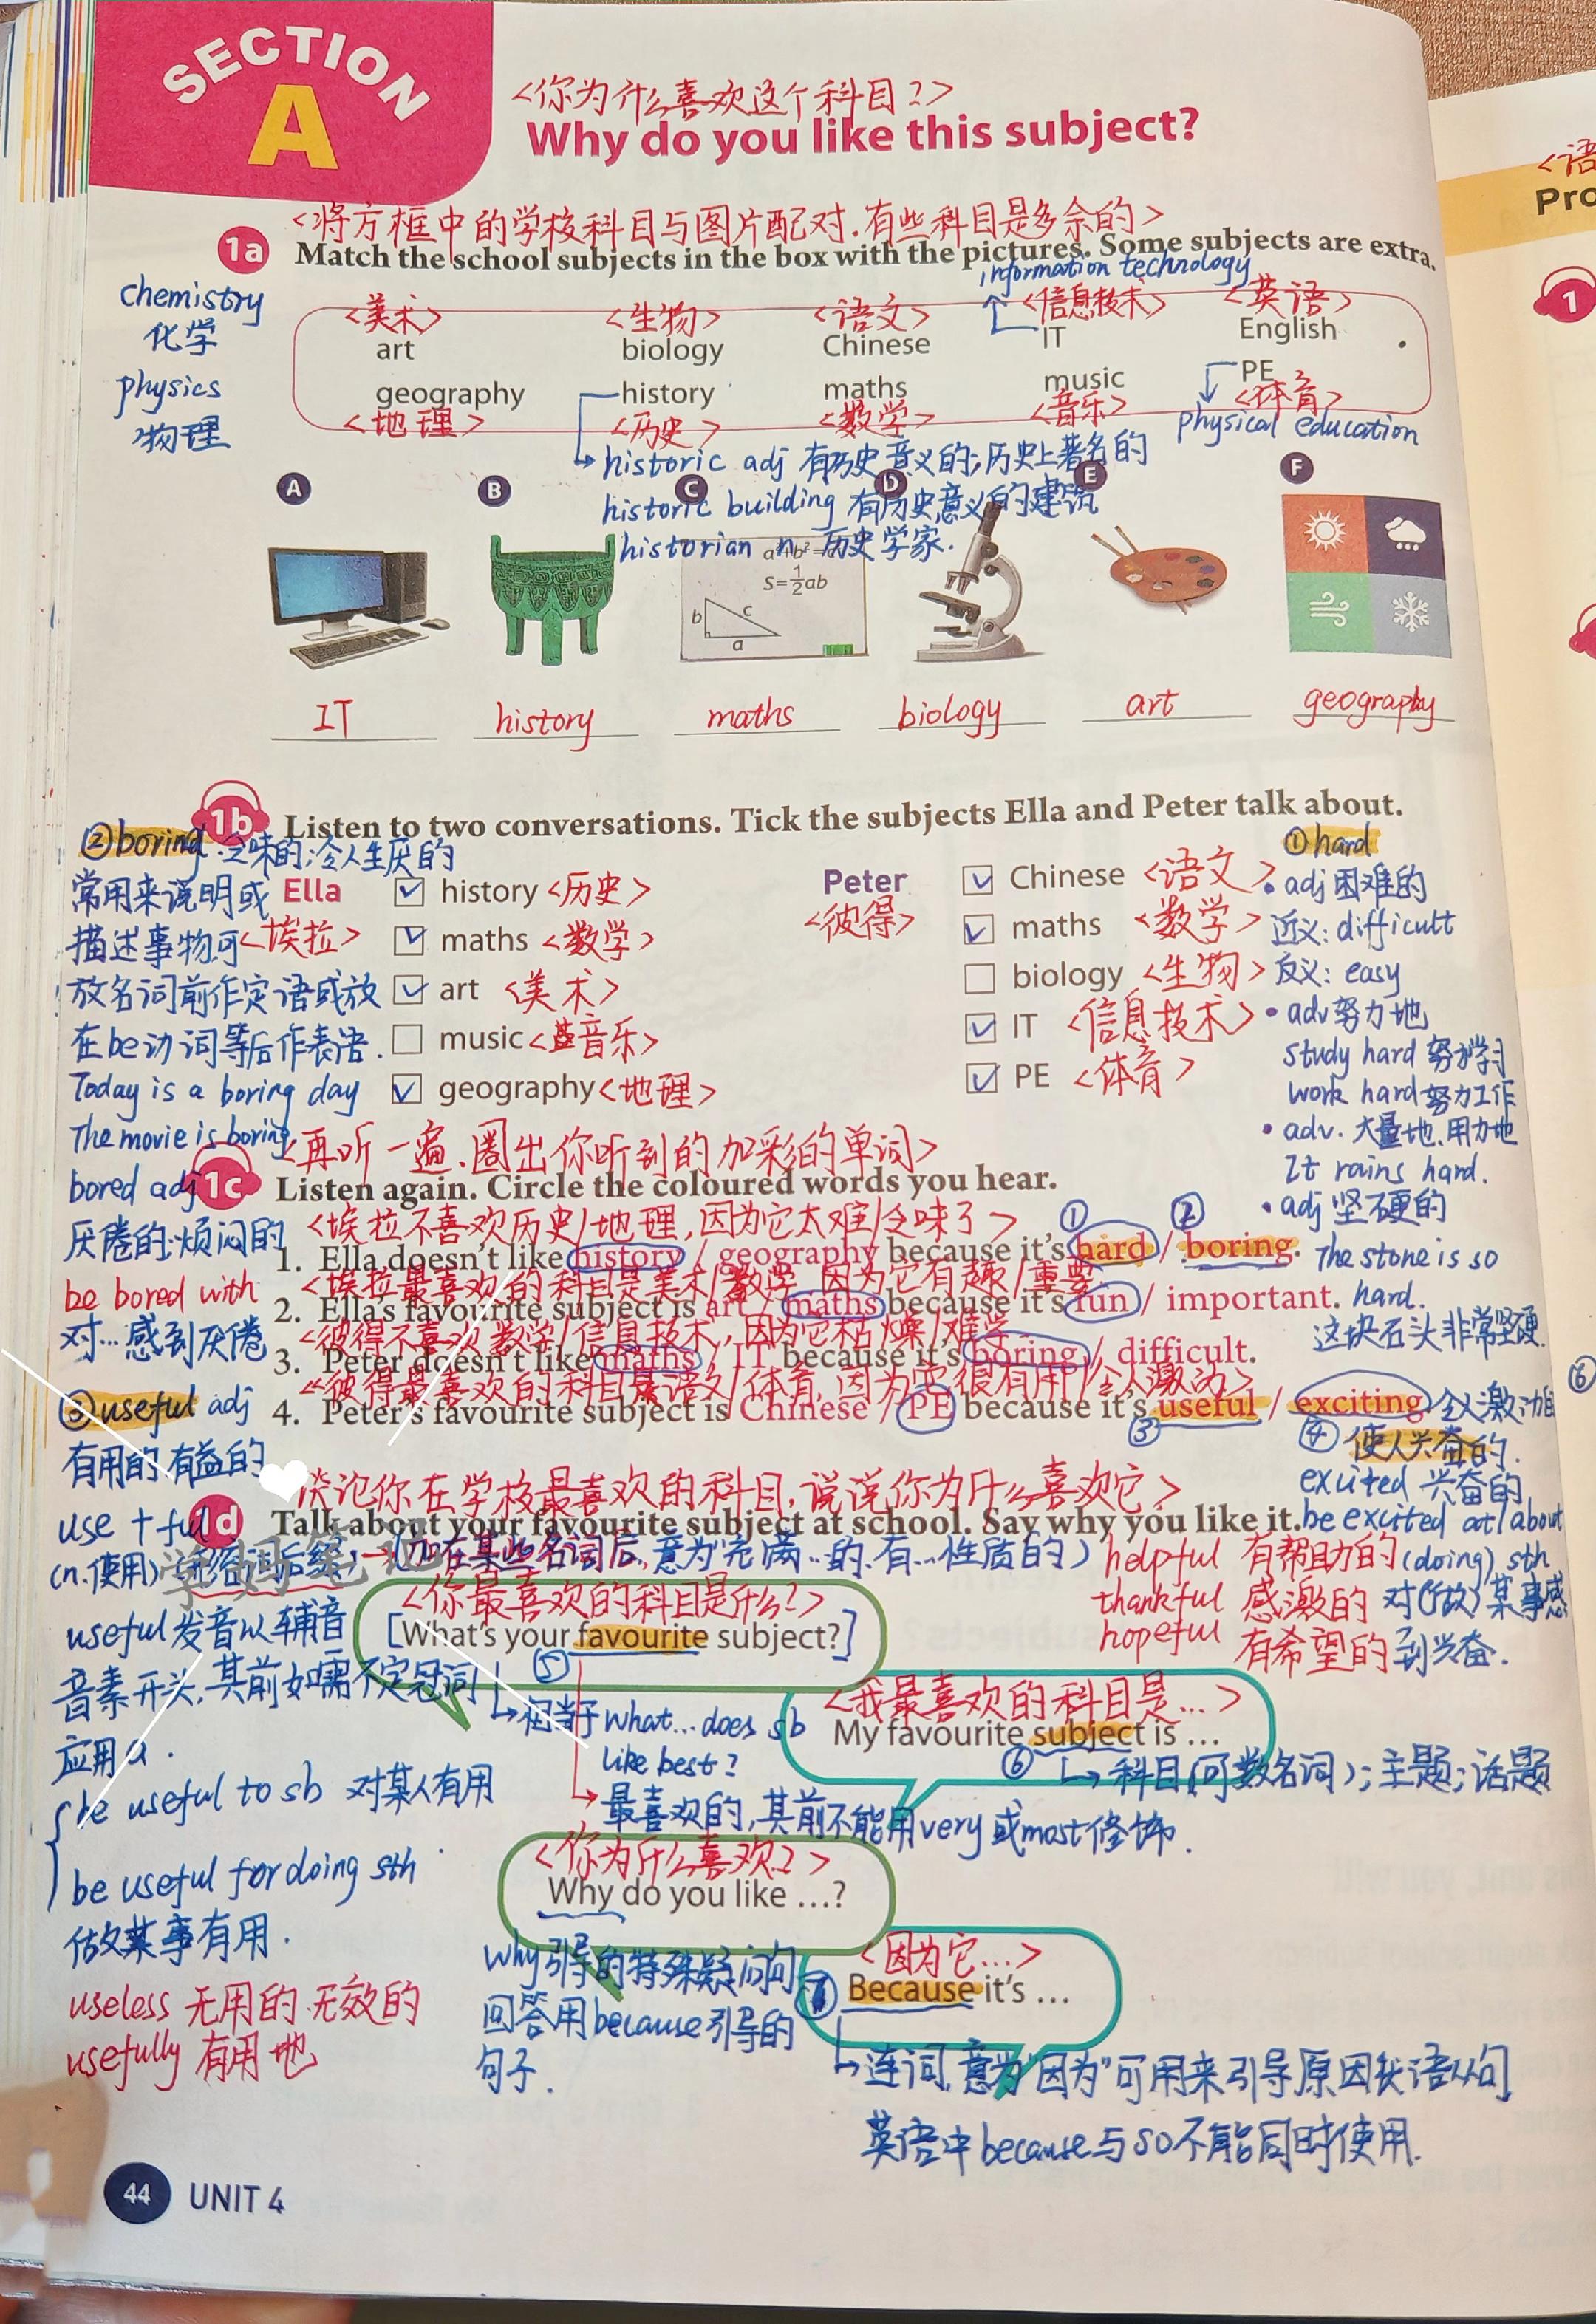 SECTION
A
<你为什么喜欢这个科目?>
Why do you like this subject?
<将方框中的学校科目与图片配对.有些科目是多余的>
1a Match the school subjects in the box with the pictures. Some subjects are extra.
information technology
chemistry
化学
physics
物理
<美术> <生物> <语文> <信息技术> <英语>
art biology Chinese IT English
geography history maths music PE
<地理> <历史> <数学> <音乐> <体育>
physical education
historic adj 有历史意义的;历史上著名的
historic building 有历史意义的建筑
historian n. 历史学家.
A B C D E F
S=1/2ab
b c
a
IT history maths biology art geography
1b Listen to two conversations. Tick the subjects Ella and Peter talk about.
②boring:乏味的;令人生厌的
常用来说明或
描述事物可
放名词前作定语或放
在be动词等后作表语.
Today is a boring day
The movie is boring.
bored adj
厌倦的.烦闷的
be bored with
对…感到厌倦
Ella
<埃拉>
☑ history <历史>
☑ maths <数学>
☑ art <美术>
☐ music <音乐>
☑ geography <地理>
Peter
<彼得>
☑ Chinese <语文>
☑ maths <数学>
☐ biology <生物>
☑ IT <信息技术>
☑ PE <体育>
①hard
• adj 困难的
近义: difficult
反义: easy
• adv 努力地
study hard 努力学习
work hard 努力工作
• adv. 大量地、用力地
It rains hard.
• adj 坚硬的
The stone is so
hard.
这块石头非常坚硬.
<再听一遍.圈出你听到的加彩的单词>
1c Listen again. Circle the coloured words you hear.
<埃拉不喜欢历史/地理,因为它太难/乏味了>
① ②
1. Ella doesn't like history / geography because it's hard / boring.
<埃拉最喜欢的科目是美术/数学 因为它有趣/重要
2. Ella's favourite subject is art / maths because it's fun / important.
<彼得不喜欢数学/信息技术,因为它枯燥/难学
3. Peter doesn't like maths / IT because it's boring / difficult.
<彼得最喜欢的科目是语文/体育,因为它很有用/令人激动>
4. Peter's favourite subject is Chinese / PE because it's useful / exciting.
③ ④
令人激动的
使人兴奋的.
excited 兴奋的
be excited at/about
(doing) sth
对(做)某事感
到兴奋.
⑥
③useful adj
有用的 有益的
use + ful
(n.使用) 形容词后缀 (加在某些名词后,意为充满…的.有…性质的)
学妈笔记
useful发音以辅音
音素开头,其前如需不定冠词
应用a.
be useful to sb 对某人有用
be useful for doing sth
做某事有用.
useless 无用的 无效的
usefully 有用地
<谈论你在学校最喜欢的科目,说说你为什么喜欢它>
1d Talk about your favourite subject at school. Say why you like it.
helpful 有帮助的
thankful 感激的
hopeful 有希望的
<你最喜欢的科目是什么?>
[What's your favourite subject?]
⑤
相当于what…does sb
like best?
最喜欢的,其前不能用very或most修饰.
<我最喜欢的科目是…>
My favourite subject is …
⑥ 科目(可数名词);主题;话题
<你为什么喜欢?>
Why do you like …?
why引导的特殊疑问句
回答用because引导的
句子.
<因为它…>
⑦ Because it's …
连词,意为"因为"可用来引导原因状语从句
英语中because与so不能同时使用.
44 UNIT 4
<语
Pro
1